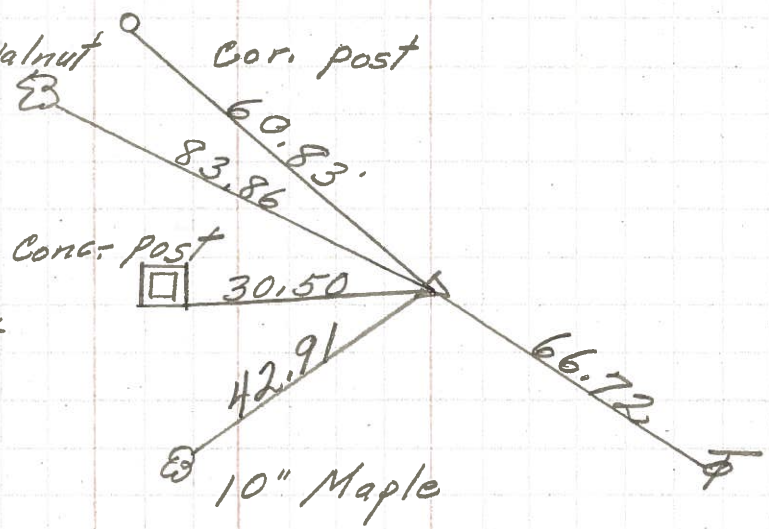 alnut
Cor. post
60.83.
83.86
Conc. Post
30.50
42.91
66.72
10" Maple